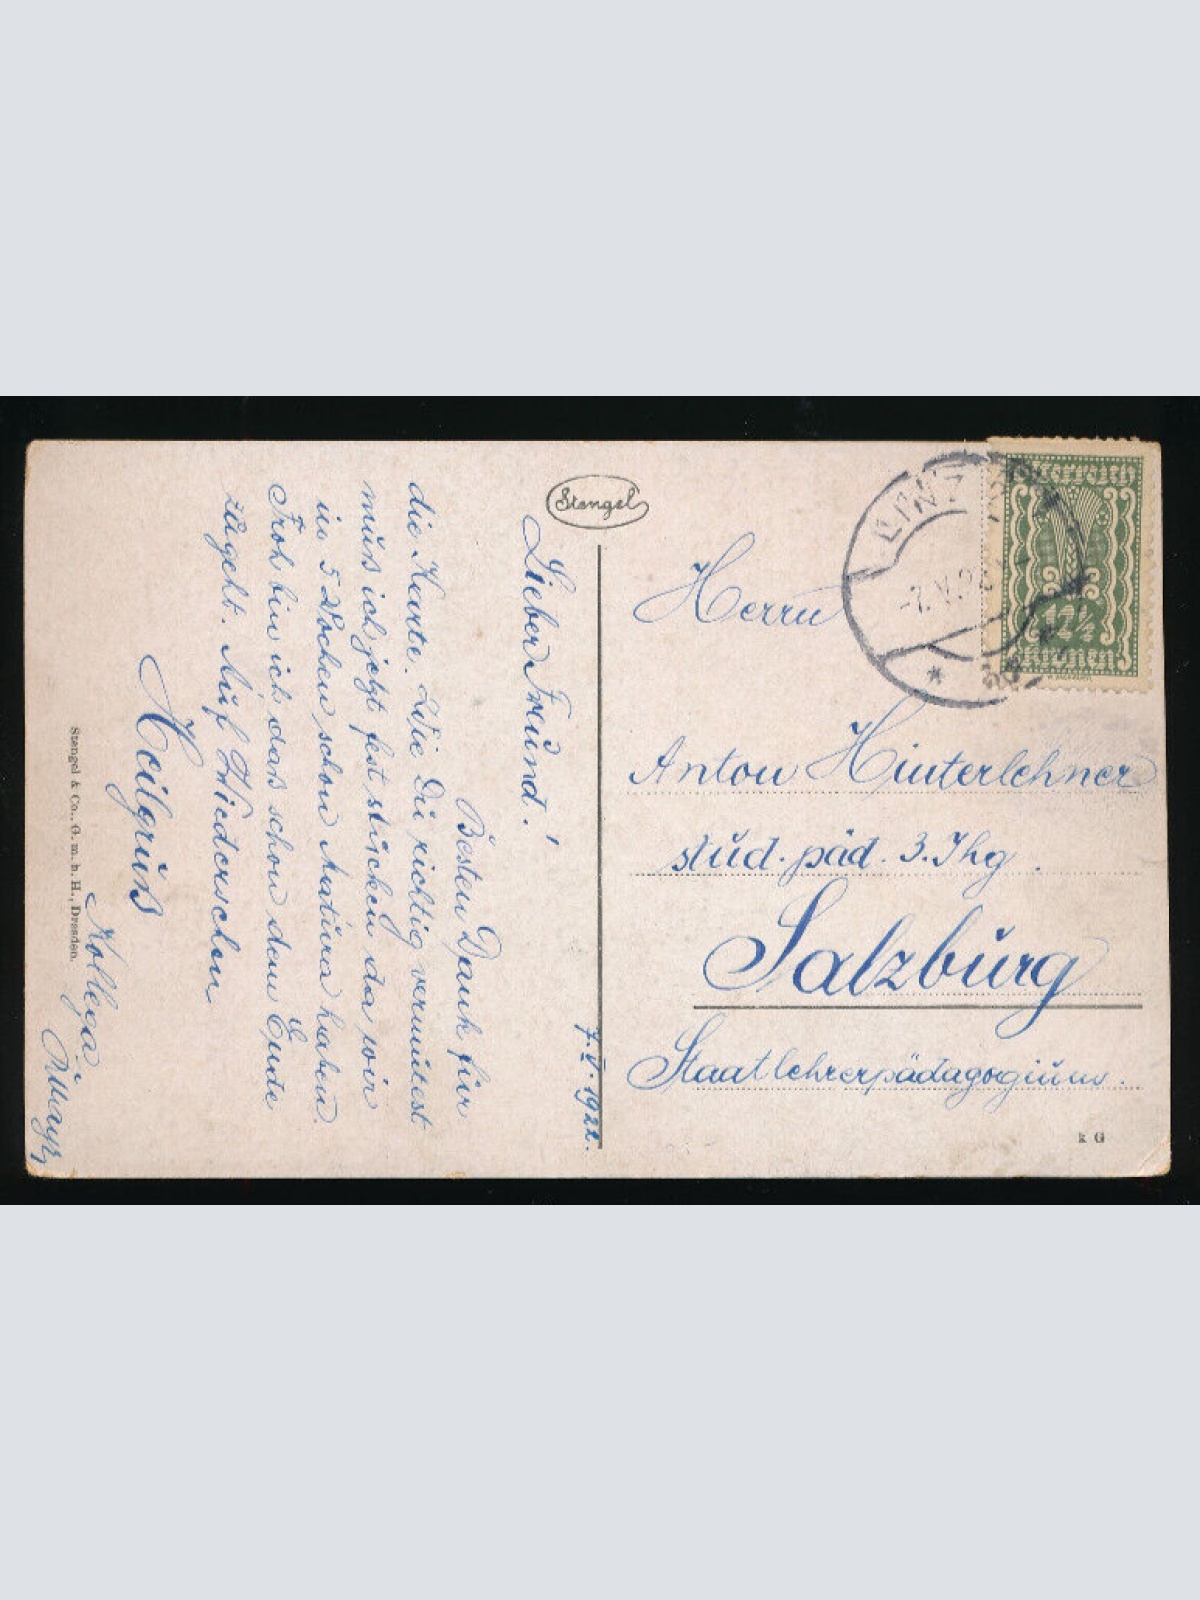 Stengel
7.V.1922.
Lieber Freund!
Besten Dank für
die Karte. Wie Du richtig vermutest
muß ich jetzt fest stucken da wir
in 5 Wochen schon Matura haben.
Froh bin ich daß schon dem Ende
zugeht. Auf Wiedersehen
Heilgruß
Kollega
Stengel & Co., G. m. b. H., Dresden.
LINZ
-7.V.2
Oesterreich
12½
Kronen
Herrn
Anton Hinterlehner
stud. päd. 3. Jhg.
Salzburg
Staatlehrerpädagogium.
k G